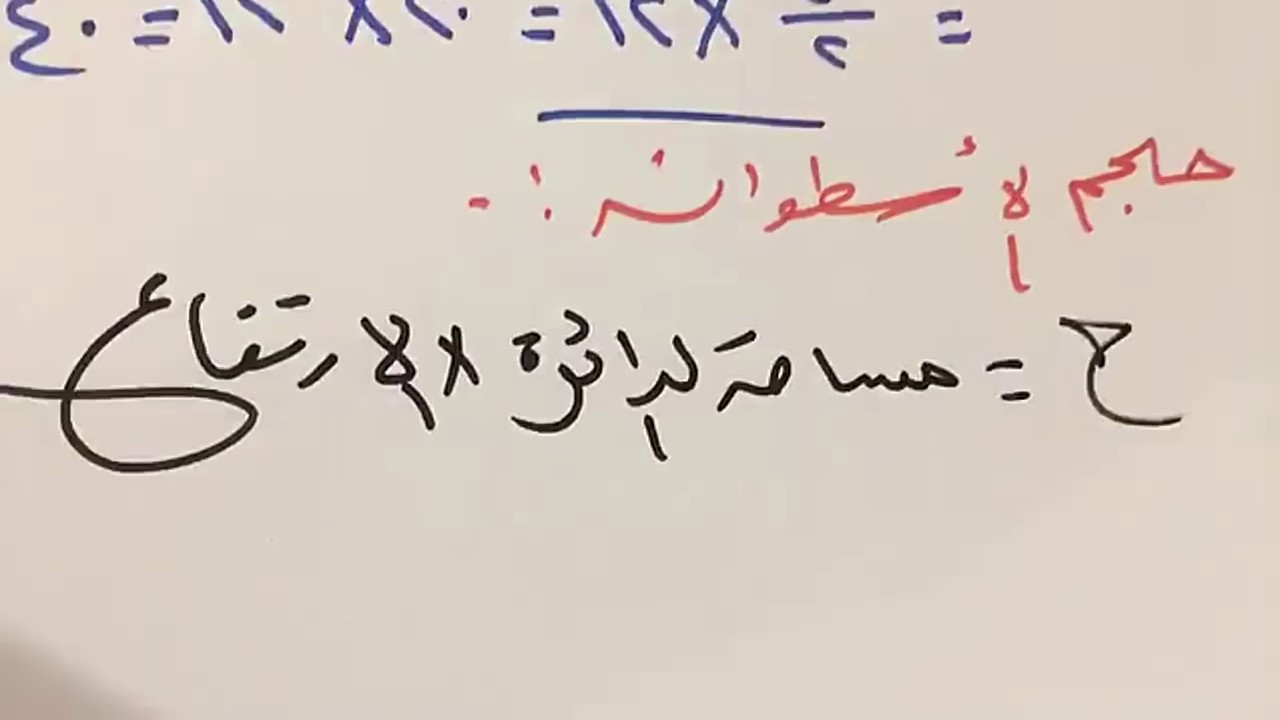 = ـــ/٢ × ١٢ = ٢٠ × ١٢ = ٤٠
حجم الأسطوانة :-
ح = مساحة الدائرة × الارتفاع